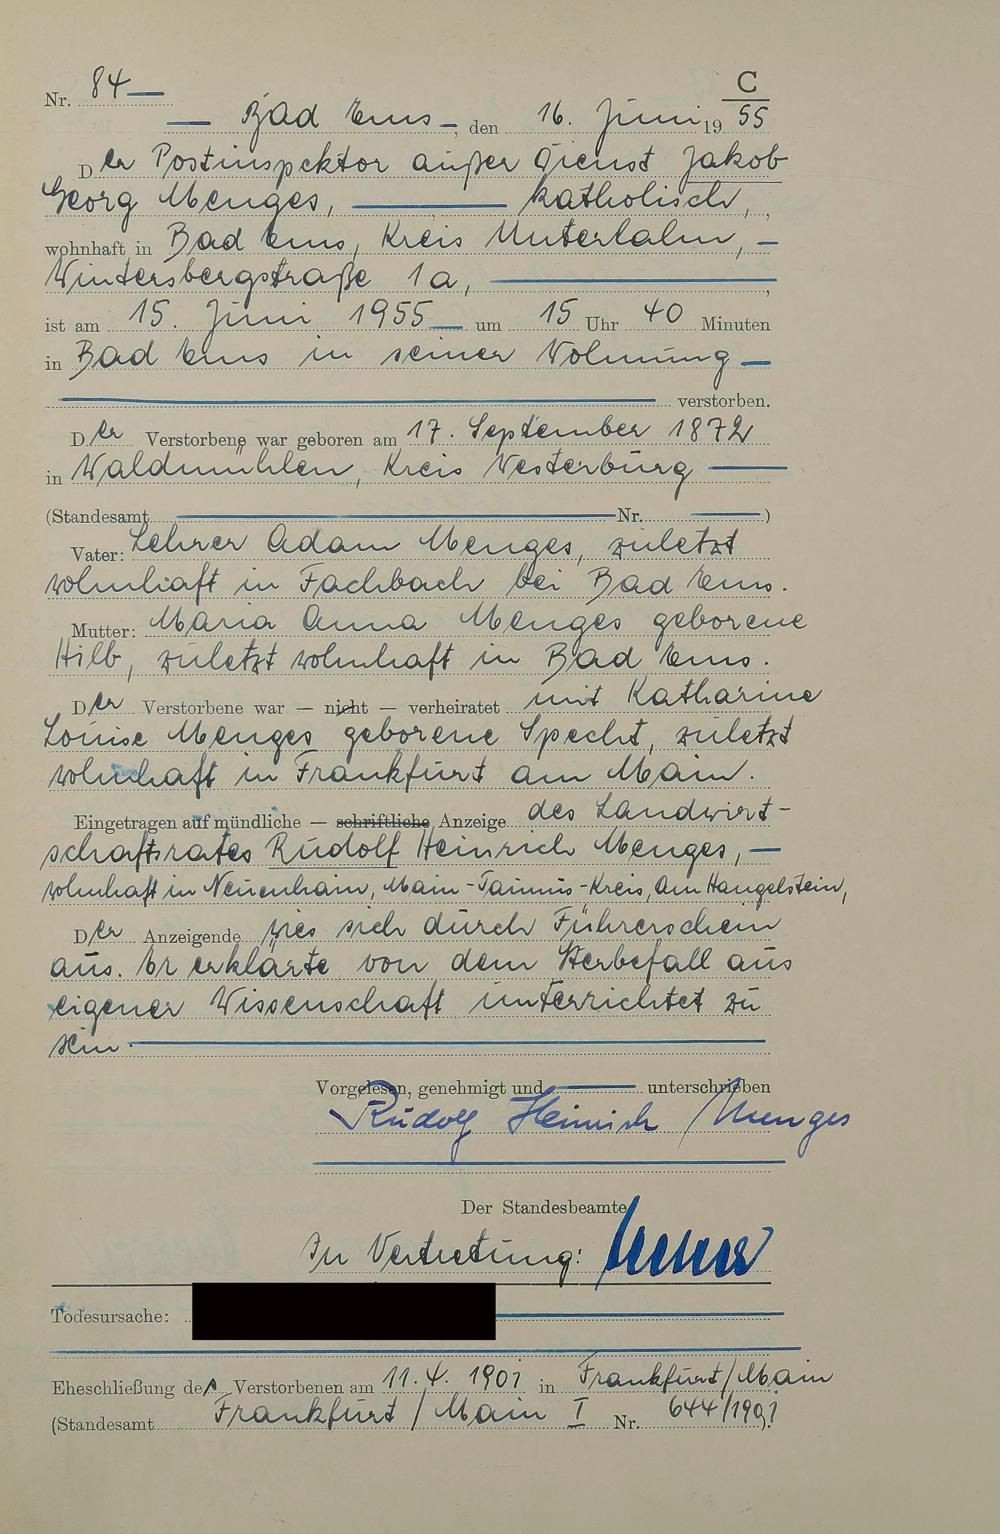 C
Nr. 84 —
— Bad Ems —, den 16. Juni 19 55
Der Postinspektor außer Dienst Jakob
Georg Menges, — katholisch,
wohnhaft in Bad Ems, Kreis Unterlahn, —
Wintersbergstraße 1a, —
ist am 15. Juni 1955 — um 15 Uhr 40 Minuten
in Bad Ems in seiner Wohnung —
— verstorben.
Der Verstorbene war geboren am 17. September 1872
in Waldmühlen, Kreis Westerburg —
(Standesamt — Nr. — )
Vater: Lehrer Adam Menges, zuletzt
wohnhaft in Fachbach bei Bad Ems.
Mutter: Maria Anna Menges geborene
Hilb, zuletzt wohnhaft in Bad Ems.
Der Verstorbene war — nicht — verheiratet mit Katharine
Louise Menges geborene Specht, zuletzt
wohnhaft in Frankfurt am Main.
Eingetragen auf mündliche — schriftliche Anzeige des Landwirt-
schaftsrates Rudolf Heinrich Menges, —
wohnhaft in Neuenhain, Main-Taunus-Kreis, Am Hangelstein,
Der Anzeigende wies sich durch Führerschein
aus. Er erklärte von dem Sterbefall aus
eigener Wissenschaft unterrichtet zu
sein. —
Vorgelesen, genehmigt und — unterschrieben
Rudolf Heinrich Menges
Der Standesbeamte
In Vertretung:
Todesursache:
Eheschließung des Verstorbenen am 11.4.1901 in Frankfurt/Main
(Standesamt Frankfurt/Main I Nr. 644/1901).